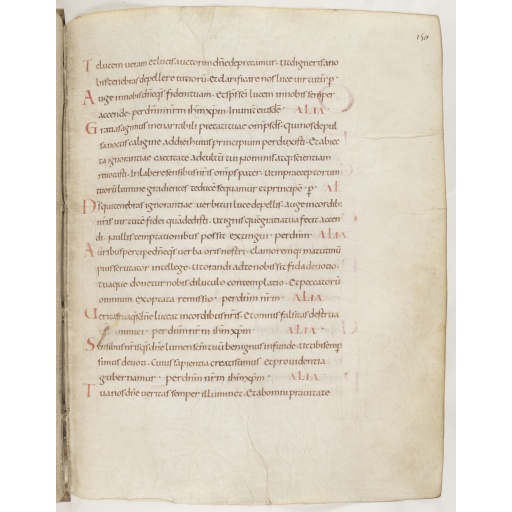 150
Te lucem veram et lucis auctorem dñe deprecamur. Ut digneris a no
bis tenebras depellere vitiorũ. Et clarificare nos luce virtutũ. p̱
Auge in nobis dñe q̃s fidem tuam. Et sp̃s sc̃i lucem in nobis semper
accende. per dñm nr̃m ihm xp̃m. ALIA
Gratias agimus inenarrabili pietati tuae omp̃s dš. qui nos depul
sa noctis caligine ad diei huius principium perduxisti. Et abiec
ta ignorantiae caecitate ad cultũ tui nominis atq; scientiam
revocasti. Inlabere sensibus nr̃is omp̃s pater. Ut in praeceptorum
tuorũ lumine gradientes te ducẽ sequamur et principẽ. p̱. AL
Dš qui tenebras ignorantiae verbi tui luce depellis. Auge in cordib;
nr̃is virtutẽ fidei quã dedisti. Ut ignis quẽ gratia tua fecit accen
di. nullis temptationibus possit extingui. per dñm. ALIA
Auribus percipe dñe q̃s verba oris nostri. clamorem q; matutinũ
pius scrutator intellege. Ut orandi ad te nobis sit fida devotio.
tuaque donetur nobis diluculo contemplatio. Et peccatorũ
omnium exoptata remissio. per dñm nr̃m. ALIA
Veritas tua q̃s dñe luceat in cordibus nr̃is. Et omnis falsitas destrua
inimici. per dñm nr̃m ihm xp̃m. ALIA
Sensibus nr̃is q̃s dñe lumen sc̃m tuũ benignus infunde. Ut tibi semp̱
simus devoti. Cuius sapientia creati sumus et providentia
gubernamur. per dñm nr̃m ihm xp̃m. ALIA
Tua nos dñe veritas semper illuminet. Et ab omni pravitate